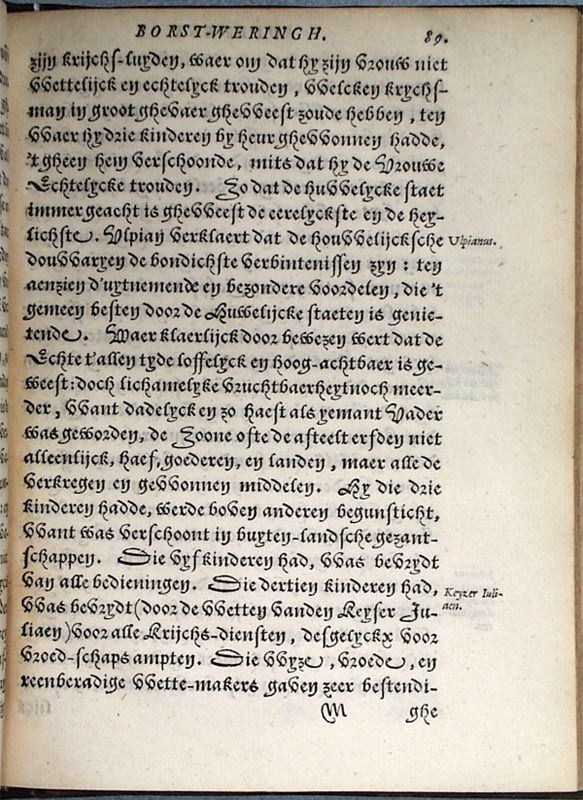 BORST-WERINGH. 89.
zijn krijchs-luyden, waer om dat hy zijn Vrouw niet
VVettelijck en echtelyck trouden, VVelcken krychs-
man in groot ghevaer ghevveest zoude hebben, ten
VVaer hy drie kinderen by heur ghevvonnen hadde,
't gheen hem verschoonde, mits dat hy de Vrouwe
Echtelycke trouden. Zo dat de huvvelycke staet
immer geacht is ghevveest de eerelyckste en de hey-
lichste. Vlpian verklaert dat de houvvelijcksche
Vlpianus.
douvvaryen de bondichste verbintenissen zyn: ten
aenzien d'uytnemende en bezondere voordelen, die 't
gemeen besten door de Huwelijcke staeten is genie-
tende. Waer klaerlijck door bewezen wert dat de
Echte t'allen tyde loffelyck en hoog-achtbaer is ge-
weest: doch lichamelyke vruchtbaerheyt noch meer-
der, VVant dadelyck en zo haest als yemant Vader
was geworden, de Zoone ofte de afteelt erfden niet
alleenlijck, haef, goederen, en landen, maer alle de
verkregen en gevvonnen middelen. Hy die drie
kinderen hadde, werde boven anderen begunsticht,
VVant was verschoont in buyten-landsche gezant-
schappen. Die vyf kinderen had, VVas bevrydt
van alle bedieningen. Die dertien kinderen had,
Keyzer Iuli-
aen.
VVas bevrydt (door de VVetten vanden Keyser Ju-
liaen) voor alle Krijchs-diensten, desgelyckx voor
vroed-schaps ampten. Die VVyze, vroede, en
reenberadige VVette-makers gaven zeer bestendi-
M ghe